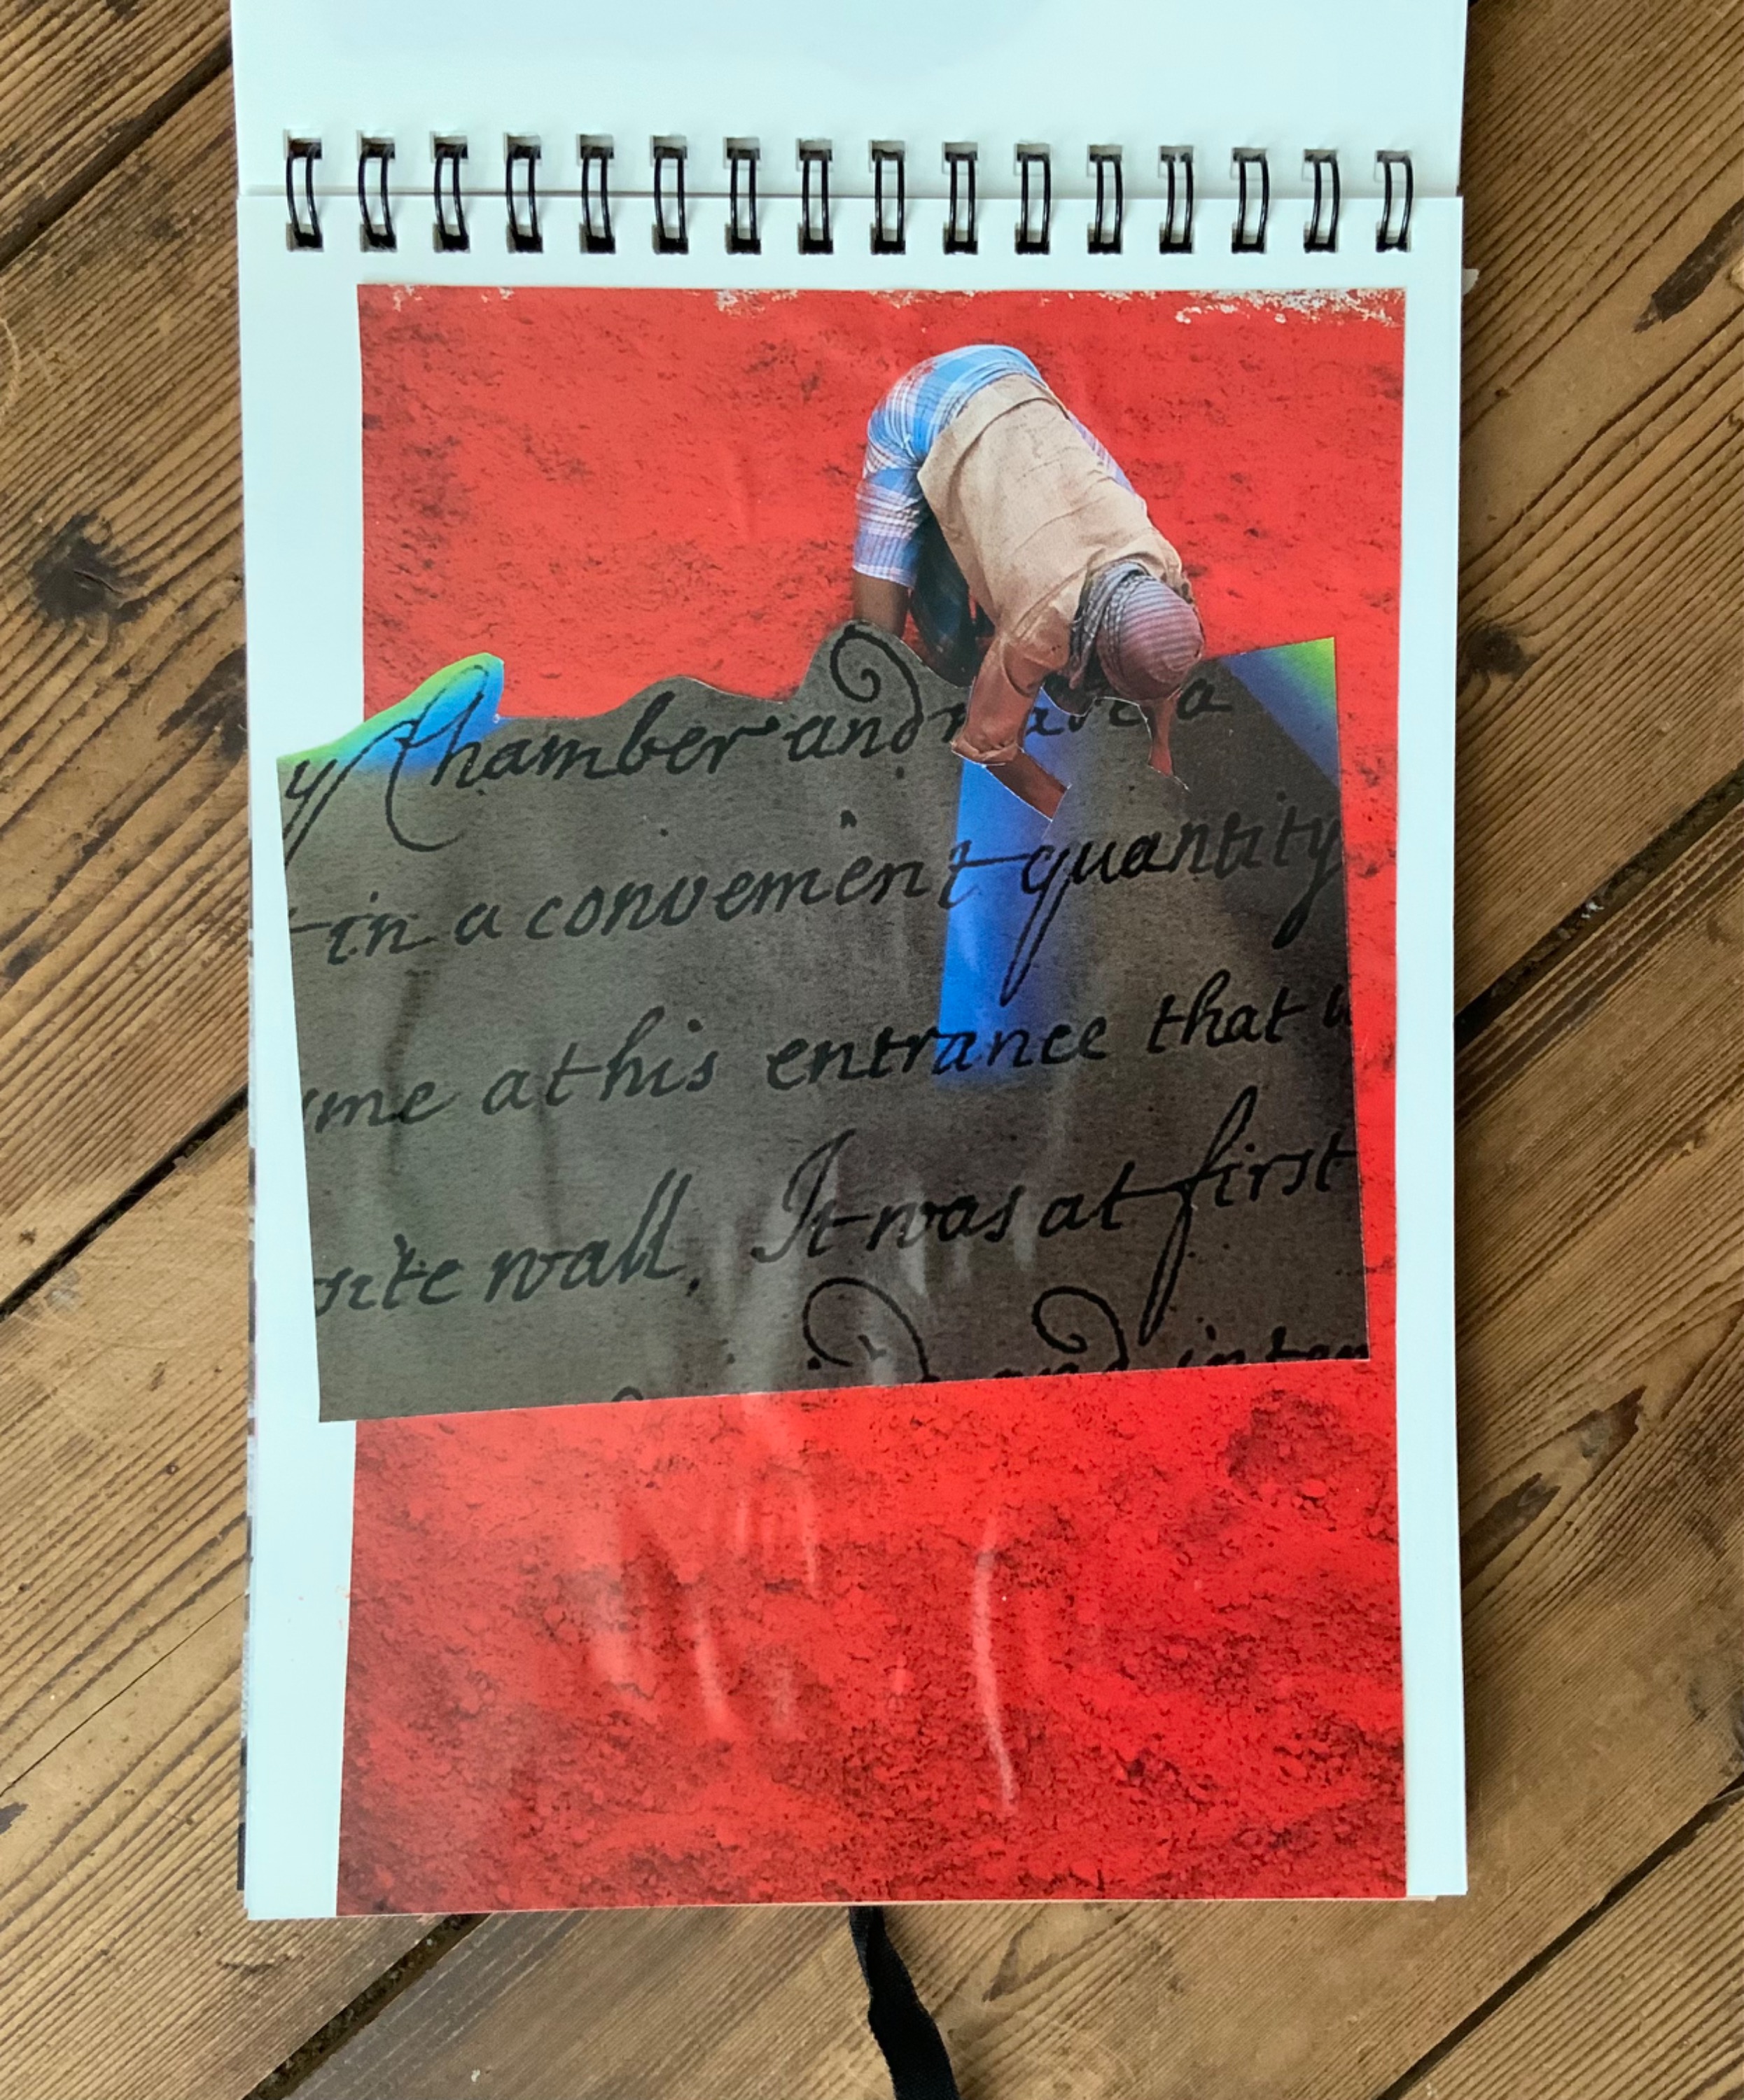 y Chamber and a
in a convenient quantity
me at his entrance that
site wall. It was at first
and inten